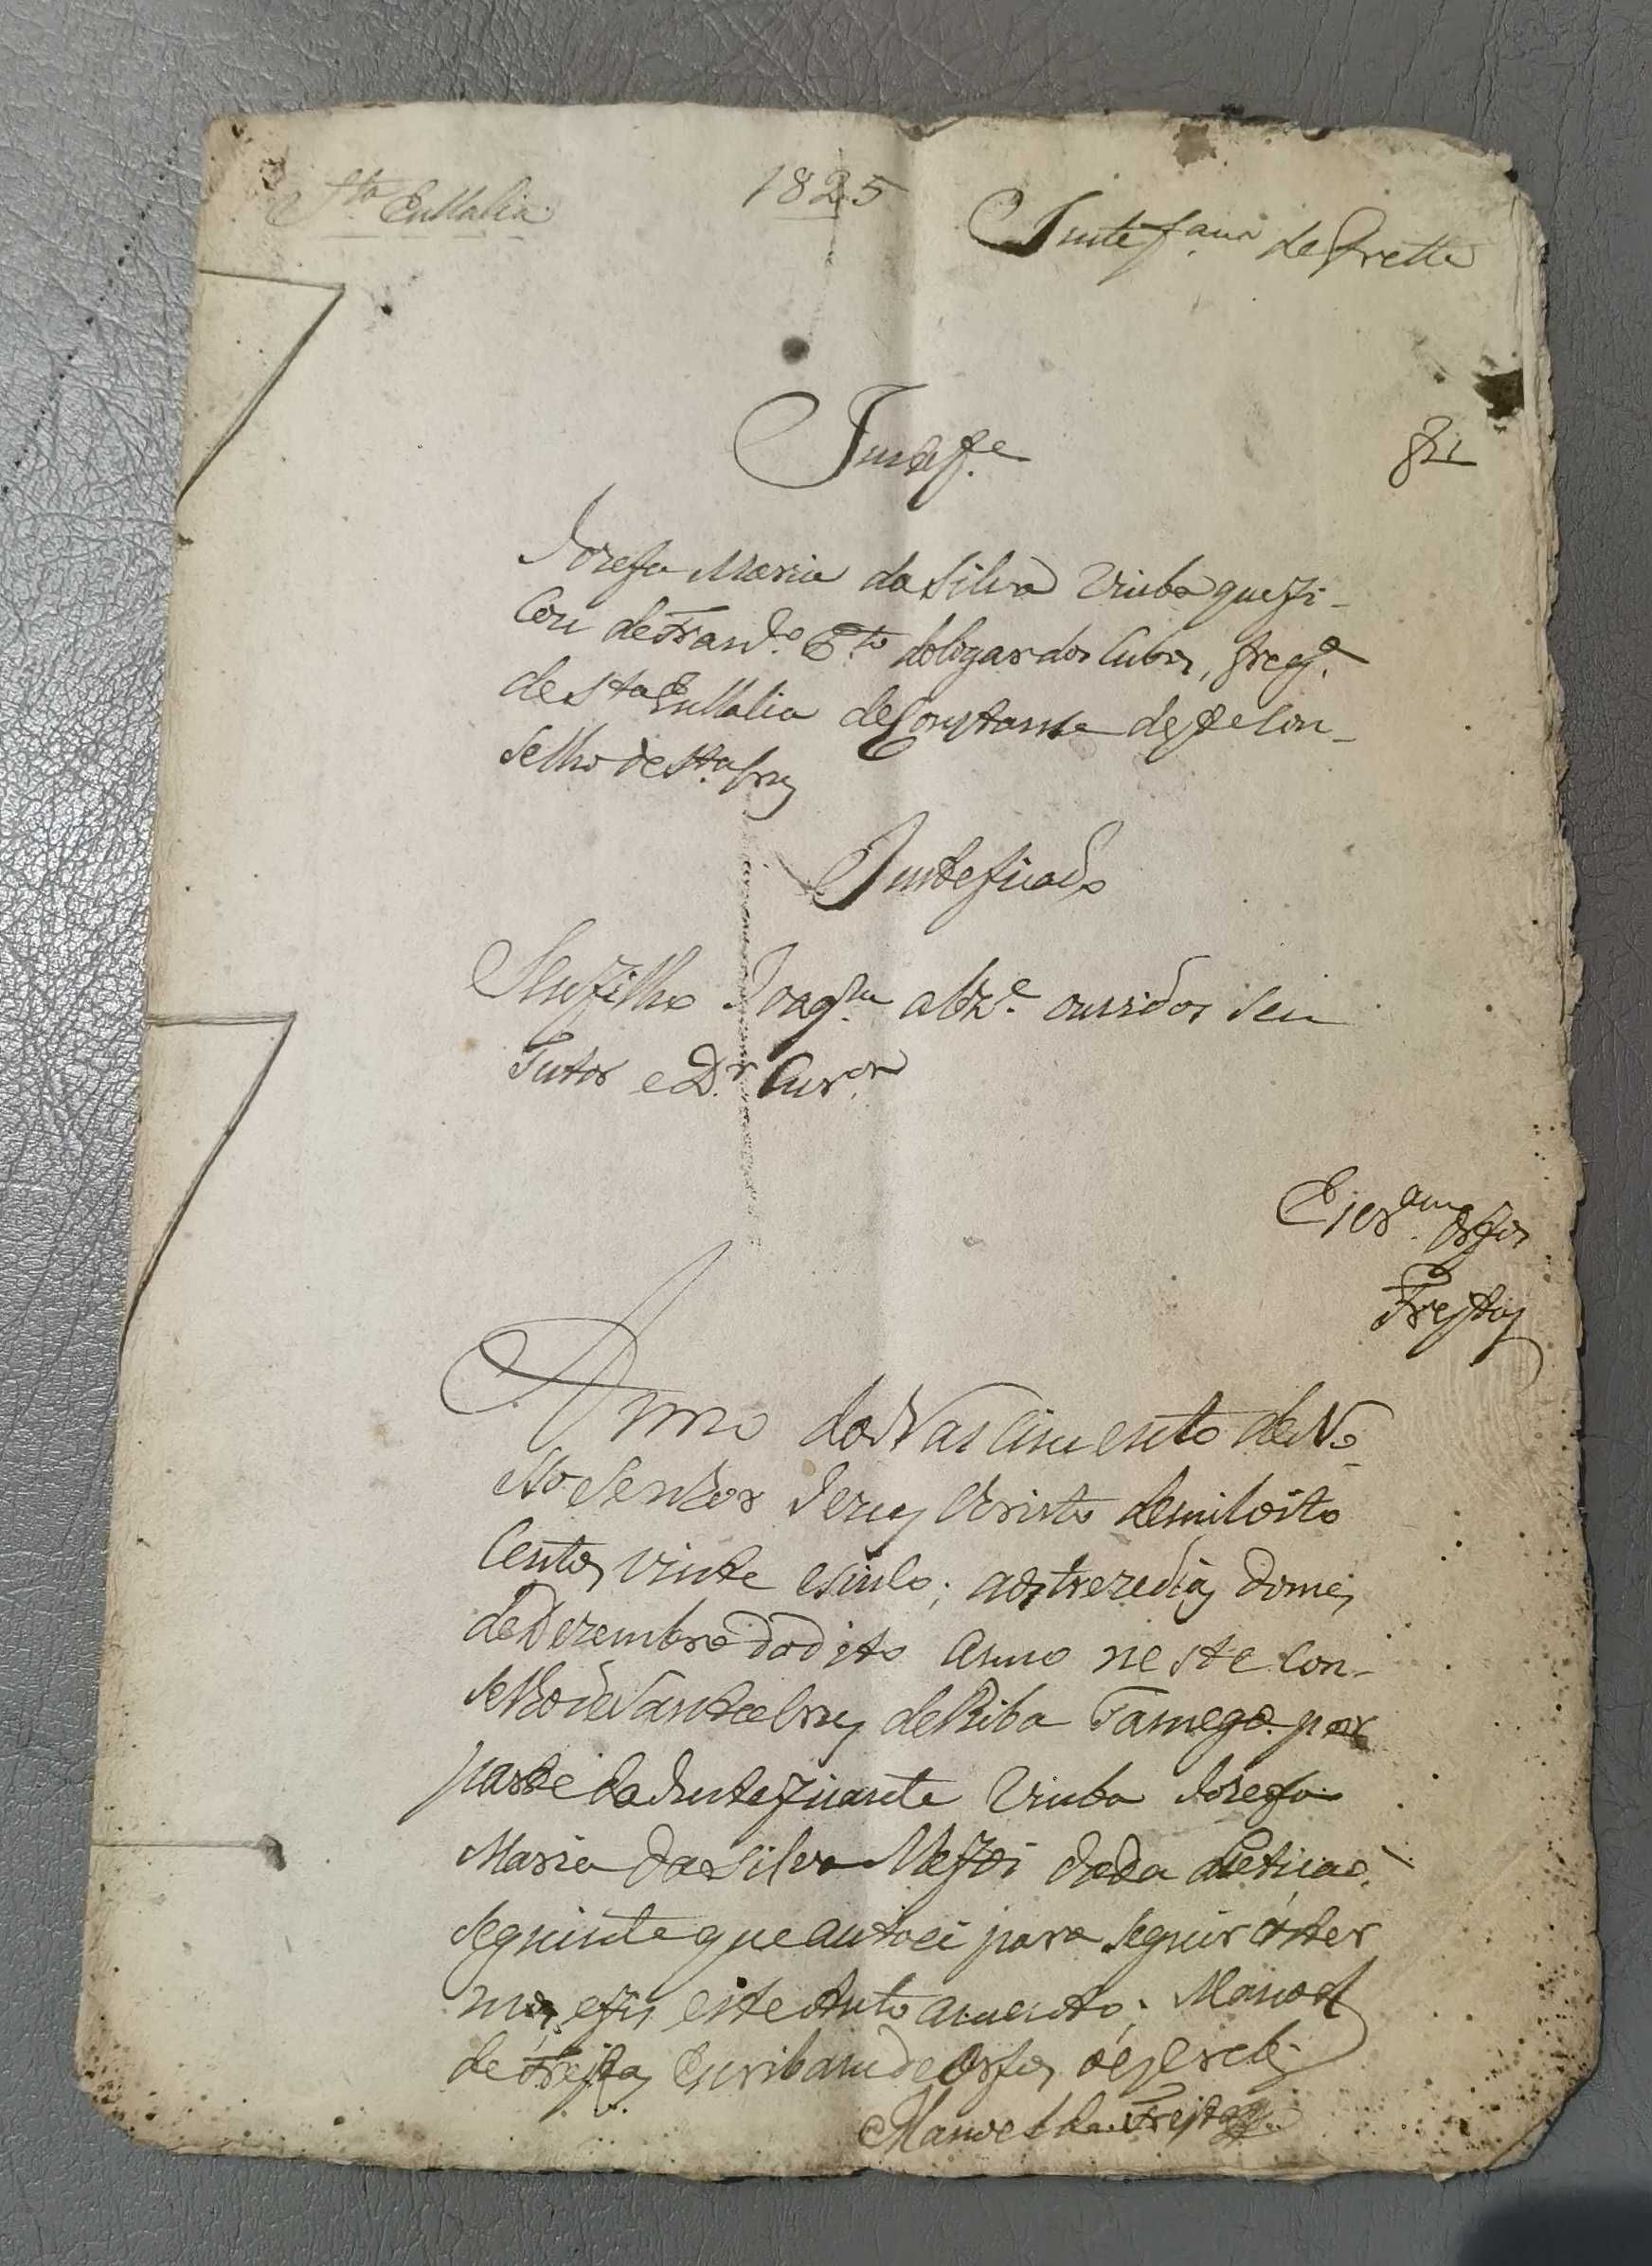 S.ta Eullalia
1825
Justef.am de Prette
Justef.e
Jozefa Maria da Silva Viuba que fi-
cou de Fran.co do lugar dos Cubos, freg.a
de S.ta Eullalia de Constance deste Con-
selho de S.ta Cruz
Justeficado
Seu filho Joaq.m auz.e ouvidos seu
Tutor e D.r Cur.or
Escr.am Orfos
Freitas
Anno do Nascimento de No-
sso Senhor Jezus Christo de mil oito
centos vinte e sinco; aos treze dias do mes
de Dezembro do dito anno neste Con-
selho de Santa Cruz de Riba Tamega por
parte da Justeficante Viuba Jozefa
Maria da Silva Me foi dada a Peticaõ
seguinte que autoei para seguir os ter
mos, e fis este Auto amento; Manoel
de Freitas Escribam de Orfos o escreby
Manoel de Freitas